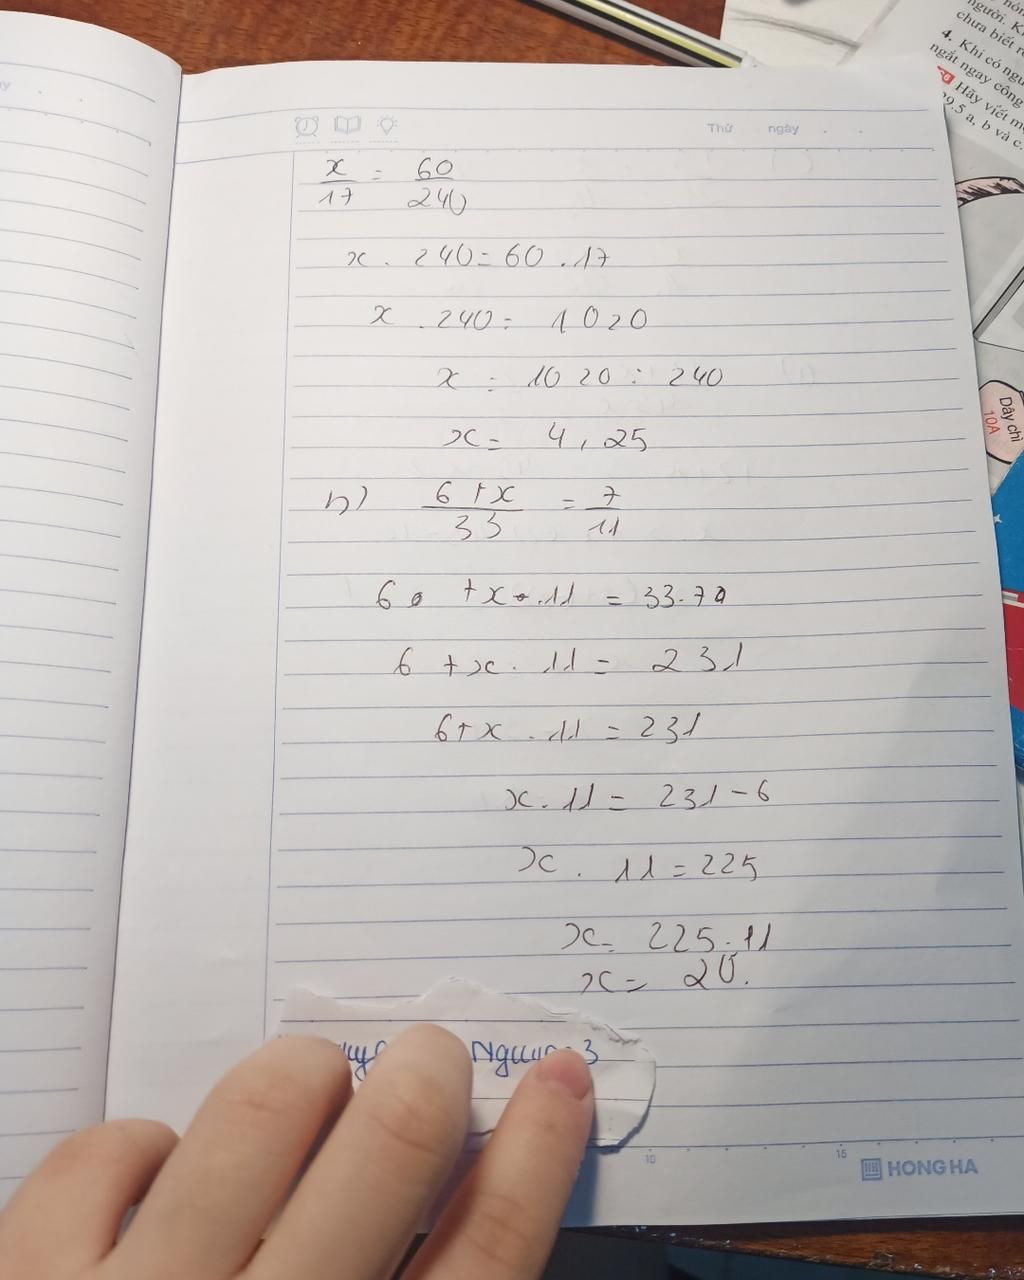 Thứ ngày . .
x/17 = 60/240
x . 240 = 60 . 17
x . 240 = 1020
x = 1020 : 240
x = 4,25
b) (6 + x)/33 = 7/11
6 + x . 11 = 33.7
6 + x . 11 = 231
6 + x . 11 = 231
x . 11 = 231 - 6
x . 11 = 225
x = 225 . 11
x = 20.
3
10 15
HONG HA
4. Khi có
ngắt ngay công
Hãy viết
9.5 a, b và c.
chưa biết
Dây chì
10A